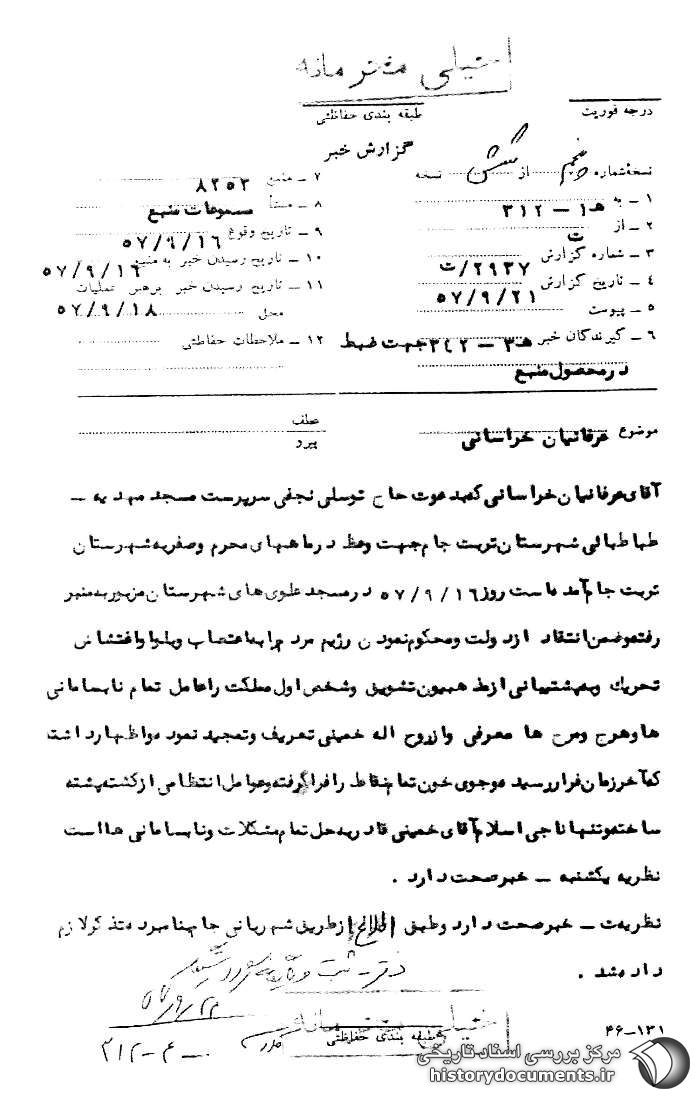 خیلی محرمانه
درجه فوریت
طبقه بندی حفاظتی
گزارش خبر
نسخه شماره پنجم از شش نسخه
۱ ـ به ه‍ ۱ ـ ۳۱۲
۲ ـ از ت
۳ ـ شماره گزارش ۲۹۳۷/ت
۴ ـ تاریخ گزارش ۵۷/۹/۲۱
۵ ـ پیوست
۶ ـ گیرندگان خبر ه‍ ۳ ـ ۳۴۲ جهت ضبط
در محصول منبع
۷ ـ منبع ۸۲۵۳
۸ ـ منشأ مسموعات منبع
۹ ـ تاریخ وقوع ۵۷/۹/۱۶
۱۰ ـ تاریخ رسیدن خبر به منبع ۵۷/۹/۱۶
۱۱ ـ تاریخ رسیدن خبر برهبر عملیات
محل ۵۷/۹/۱۸
۱۲ ـ ملاحظات حفاظتی
موضوع عرفانیان خراسانی
عطف
پیرو
آقای عرفانیان خراسانی که بدعوت حاج توسلی نجفی سرپرست مسجد مهدیه ـ
طباطبائی شهرستان تربت جام جهت وعظ در ماههای محرم وصفر به شهرستان
تربت جام آمده است روز ۵۷/۹/۱۶ در مسجد علوی های شهرستان مزبور به منبر
رفته وضمن انتقاد از دولت ومحکوم نمودن رژیم مردم را به اعتصاب وبلوا واغتشاش
تحریک وبه پشتیبانی از مذهبیون تشویق وشخص اول مملکت را عامل تمام نابسامانی
ها وهرج ومرج ها معرفی واز روح اله خمینی تعریف وتمجید نموده واظهار داشت
که آخر زمان فرا رسیده وجوی خون تمام نقاط را فرا گرفته وعوامل انتظامی از کشته پشته
ساخته وتنها ناجی اسلام آقای خمینی قادر به حل تمام مشکلات ونابسامانی ها است
نظریه یکشنبه ـ خبر صحت دارد .
نظریه ت ـ خبر صحت دارد وطبق اطلاع از طریق شهربانی جام بنامبرده تذکر لازم
داده شد .
۵۷/۹/۲۲
خیلی محرمانه
طبقه بندی حفاظتی
۳۱۲
۴۶-۱۳۱
مرکز بررسی اسناد تاریخی
historydocuments.ir